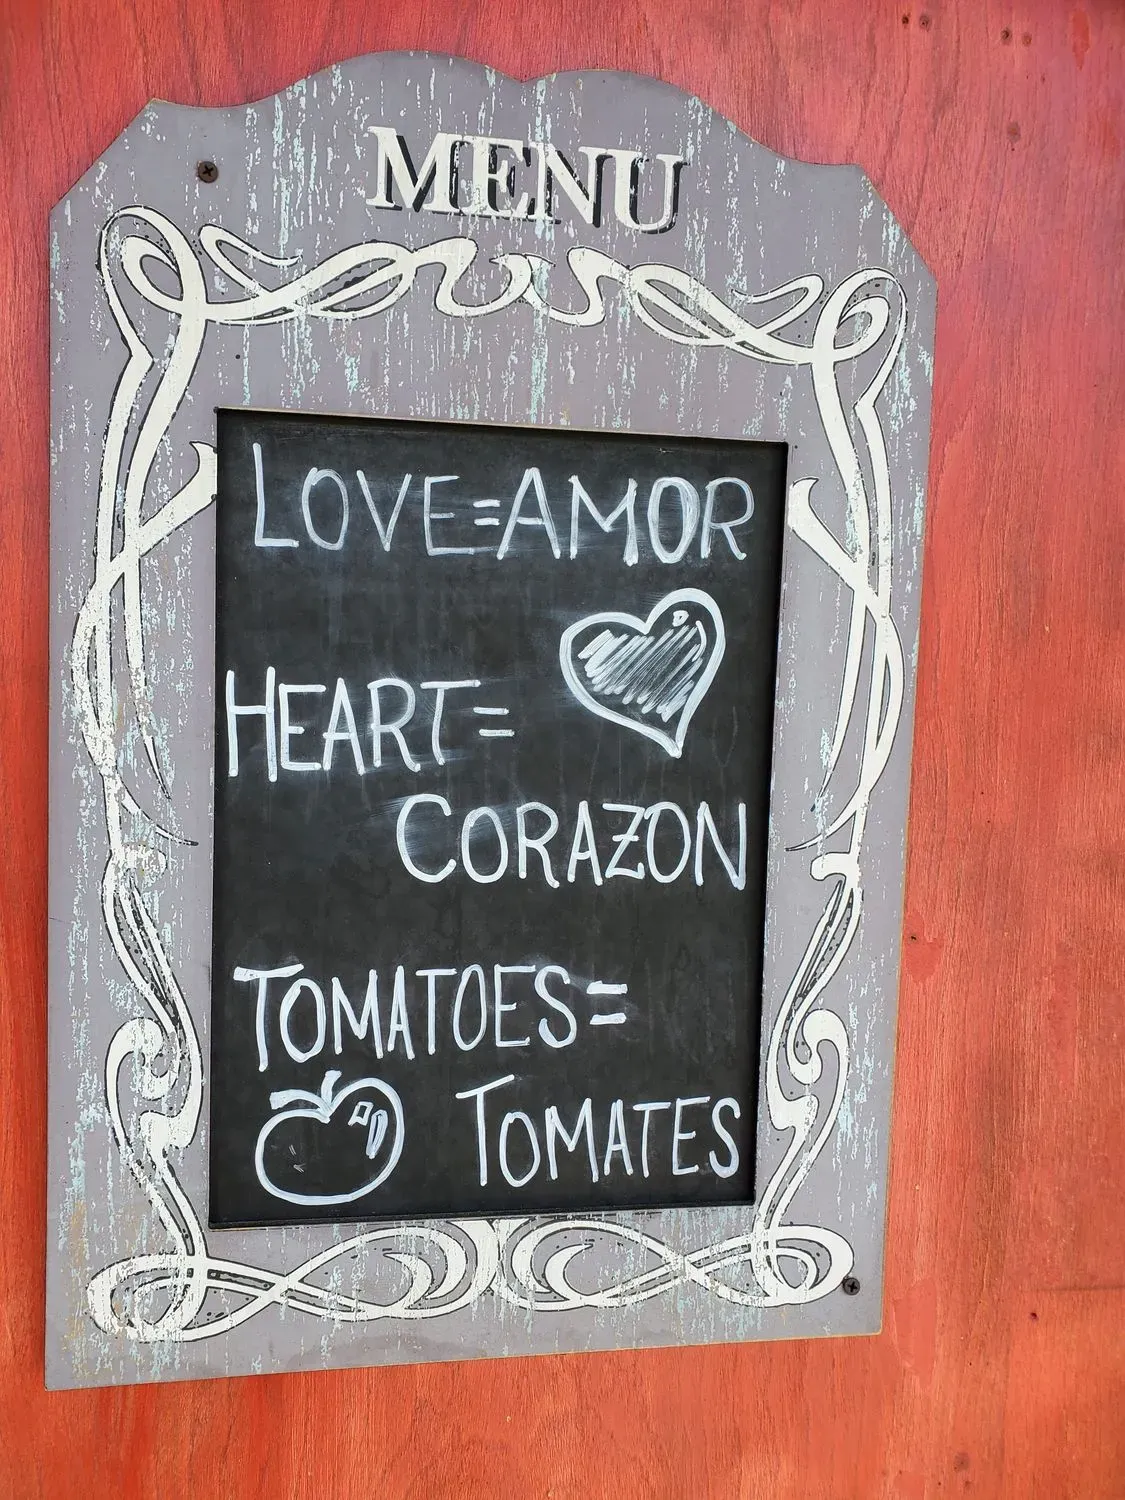 MENU
LOVE=AMOR
HEART=
CORAZON
TOMATOES=
TOMATES